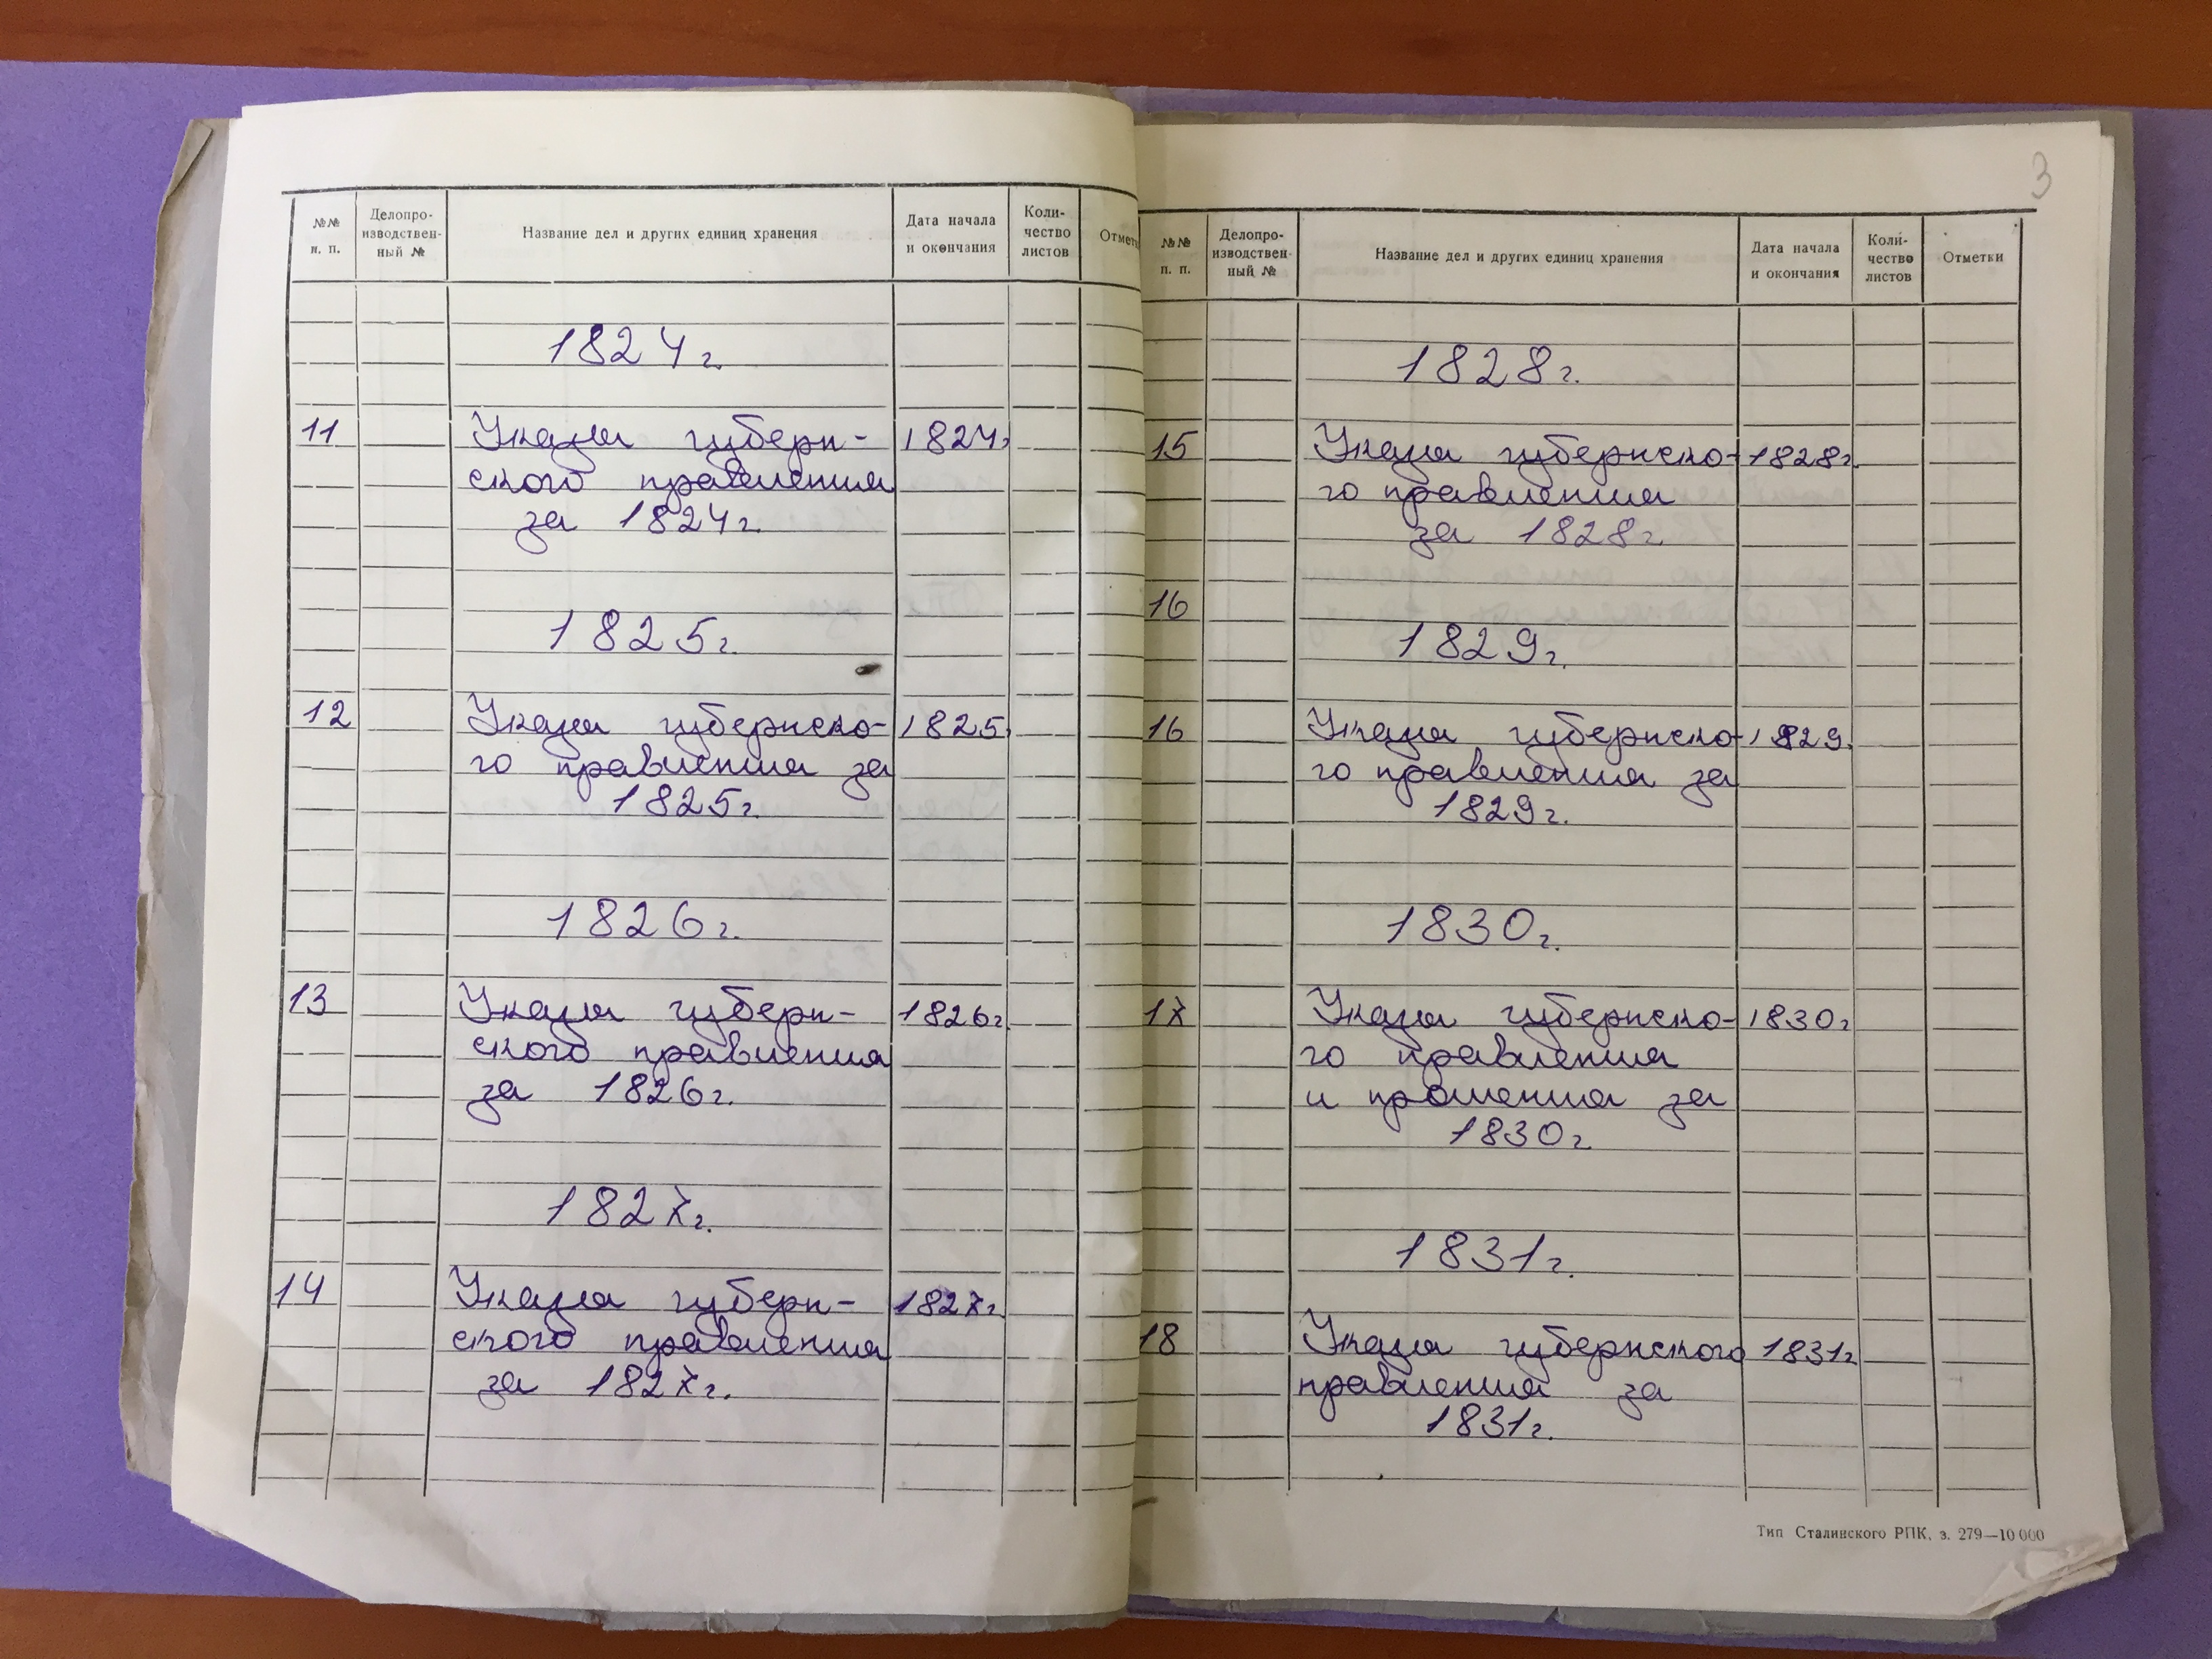 №№ н. п.
Делопро-
изводствен-
ный №
Название дел и других единиц хранения
Дата начала
и окончания
Коли-
чество
листов
Отметк
1824г.
11 Указы губерн- 1824г
ского правления
за 1824г.
1825г.
12 Указы губернско- 1825г
го правления за
1825г.
1826г.
13 Указы губерн- 1826г.
ского правления
за 1826г.
1827г.
14 Указы губерн- 1827г.
ского правления
за 1827г.
3
№№ п. п.
Делопро-
изводствен-
ный №
Название дел и других единиц хранения
Дата начала
и окончания
Коли-
чество
листов
Отметки
1828г.
15 Указы губернско- 1828г.
го правления
за 1828г.
16
1829г.
16 Указы губернско- 1829г.
го правления за
1829г.
1830г.
17 Указы губернско- 1830г
го правления
и прошения за
1830г.
1831г.
18 Указы губернского 1831г
правления за
1831г.
Тип Сталинского РПК, з. 279—10 000